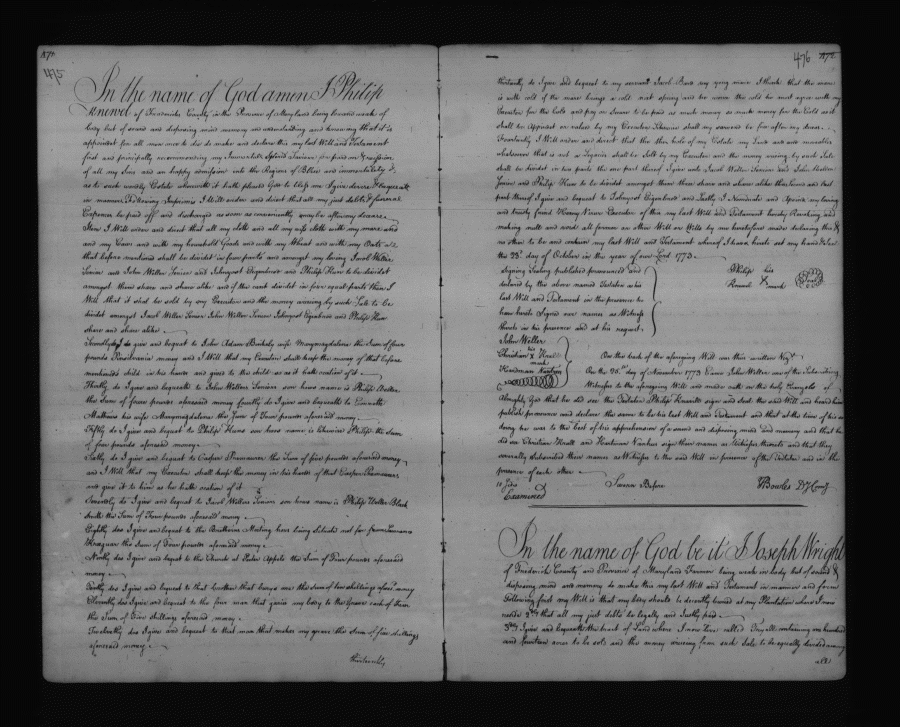 475
In the name of God amen I Philip
Knavel of Frederick County in the Province of Maryland being weak of
body but of sound and disposing mind memory and understanding and knowing that it is
appointed for all men once to die do make and declare this my last Will and Testament
first and principally recommending my Immortal Spirit
of all my Sins and an happy admission into the Regions of Bliss and immortality &
as to such worldly Estate wherewith it hath pleased God to bless me I give devise & bequeath
in manner Following Imprimis I Will order and direct that all my just debts & funeral
Expences be paid off and discharged as soon as conveniently may be after my decease
Item I Will order and direct that all my cloth and all my wife cloth with my mare
and my Cows and with my household Goods and with my Wheat and with my Oats
that before mentioned shall be divided in four parts and amongst my loving Jacob Weller
Senior and John Weller Senior and and Philip Haus to be divided
amongst them share and share alike and if the cash divided in five equal parts then I
Will that it shal be sold by my Executor and the money arising by such Sale to be
divided amongst Jacob Weller Senior John Weller Senior and Philip Haus
share and share alike
Secondly I do give and bequeath to John Adam wife Marymagdalena the Sum of four
pounds Pensilvania money and I Will that my Executor shall keep the money of that before
mentioned child in his hands and give to this child as as it hath nation of it
Thirdly do I give and bequeath to John Wellers Seniors son hows name is Philip Weller
this Sum of four pounds aforesaid money fourthly do I give and bequeath to
Mathews his wife Marymagdalena this Sum of Four pounds aforesaid money
Fifthly do I give and bequeat to Philip Haus son hows name is Philip the Sum
of five pounds aforesaid money
Sixtly do I give and bequeat to Casper the Sum of five pounds aforesaid money
and I Will that my Executor shall keep this money in his hands of that Casper
and give it to him as he hath nation of it
Seventhly do I give and bequeat to Jacob Wellers Seniors son hows name is Philip Weller Black
Smith the Sum of Four pounds aforesaid money
Eightly do I give and bequeat to the Brothern Meeting hows being Situated not far from
the Sum of Four pounds aforesaid money
Ninthly do I give and bequeat to the Church at the Sum of Five pounds aforesaid
money
Tenthly do I give and bequeat to that brother that buryes me this sum of two shillings afores money
Eleventhly do I give and bequeat to the four men that to the Grave each of them
this Sum of Five shillings aforesaid money
Twelvethly do I give and bequeat to that man that makes my grave this Sum of five shillings
aforesaid money
thirteenthly
476
thirteenthly do I give and bequeat to my servant Jacob my young mare I think that the mare
is with cold if the mare brings a cold next spring and the mare this cold he must agree with my
Executor for this Cold and pay as Soone to be paid as much money as much money for the Cold as it
shall be Apprised or values by my Executor Likewise shall my servand be free after my deas
Fourteenthly I Will order and direct that the other hole of my Estate my Land and and movables
whatsoever that is not a Legacie shall be Sold by my Executor and the money arising by such Sale
shall be divided in two parts the one part thereof I give unto Jacob Weller Senior and John Weller
Senior and Philip Haus to be divided amongst them share and share alike the Second and Last
part thereof I give and bequeat to and Lastly I Nominate and Apoint my loving
and trusty friend Executor of this my last Will and Testament hereby Revoking and
making null and void all former or other Will or Wills by me heretofore made declaring this &
no other to be and contain my last Will and Testament whereof I have hereto set my hand & Seal
the 23d day of October in the year of our Lord 1773
Signing Sealing published pronounced and
declared by the above named Testator as his
last Will and Testament in the presence be
have hereto Signed our names as Witness
thereto in his presence and at his request
Philip his
Knavel X mark
Seal
John Weller
his
Christian X
mark
Hardman
On the back of the aforegoing Will was thus written Viz
On the 26th day of November 1773 Came John Weller one of the Subscribing
Witnesses to the aforegoing Will and made oath on the holy Evangels of
Almighty God that he did see the Testator Philip Knavel sign and Seal this said Will and heard him
publish pronounce and declare the same to be his last Will and Testament and that at the time of his so
doing he was to the best of his apprehension of a sound and disposing mind and memory and that he
did see Christian and Hardman sign their names as Witnesses thereto and that they
severally subscribed their names as Witnesses to the said Will in presence of the Testator and in the
presence of each other
Examined
Sworn Before
T Bowles Dy Comy
In the name of God be it I Joseph Wright
of Frederick County and Province of Maryland Farmer being weak in body but of sound &
disposing mind and memory do make this my last Will and Testament in manner and form
Following first my Will is that my body should be decently buried at my Plantation where I now
reside 2ndly that all my just debts be legally and Justly paid
3rdly I give and bequeath the tract of Land where I now live called containing one hundred
and fourteen acres to be sold and the money arising from such Sale to be equally divided among